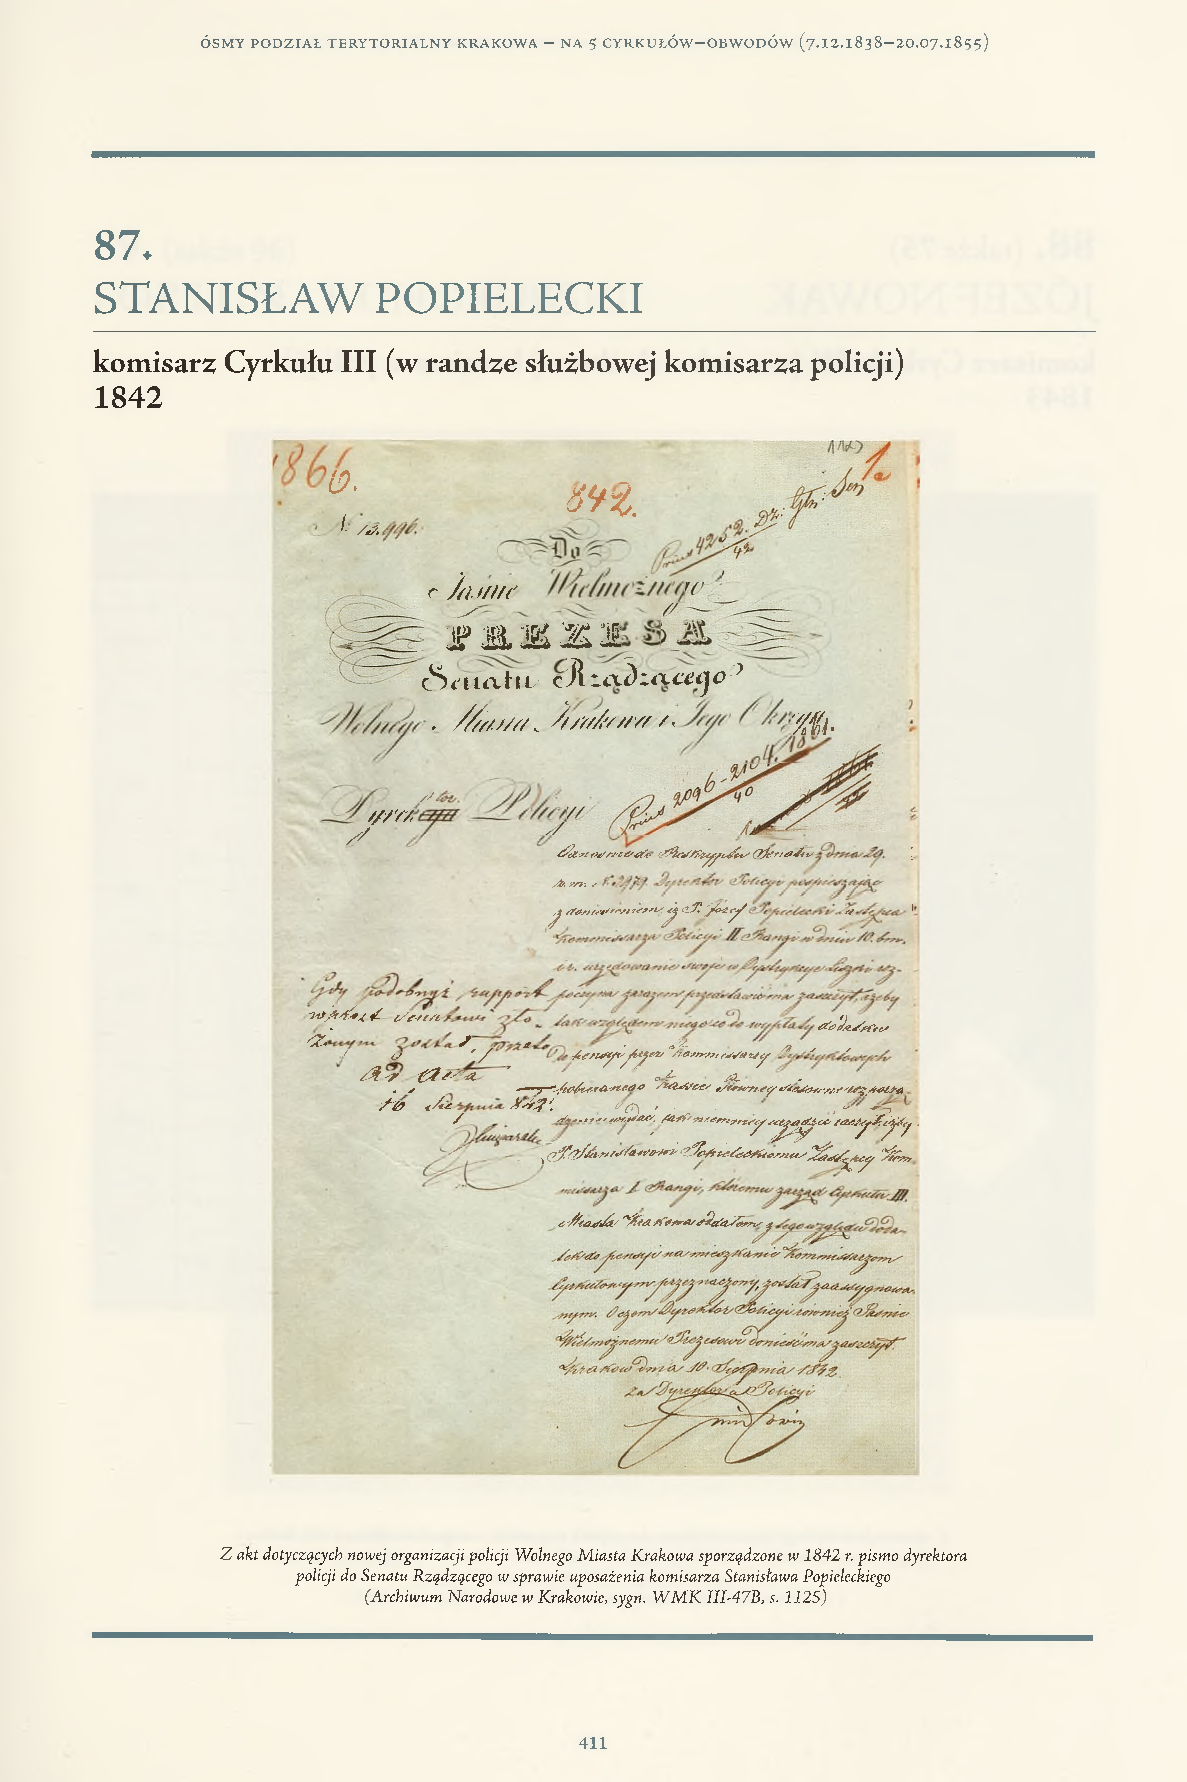 ÓSMY PODZIAŁ TERYTORIALNY KRAKOWA – NA 5 CYRKUŁÓW–OBWODÓW (7.12.1838–20.07.1855)
87.
STANISŁAW POPIELECKI
komisarz Cyrkułu III (w randze służbowej komisarza policji)
1842
1866.
842.
1125
N. 13.996.
Prius 4252. Dz: Gł: Sen
42
Do
Jaśnie Wielmożnego
PREZESA
Senatu Rządzącego
Wolnego Miasta Krakowa i Jego Okręgu
Prius 2096-2104. 1861.
40
Dyrektor Policyi
Odnośnie do Reskryptu Senatu z dnia 29.
v. m. N. 2979. Dyrektor Policyi pospieszając
z doniesieniem, iż P. Józef Popielecki Zastępca
Kommissarza Policyi II Rangi w dniu 10. b.m.
i r. urzędowanie swoje w Dystrykcie Liszki roz-
poczyna zarazem przedstawić ma zaszczyt, ażeby
tak względem niego co do wypłaty dodatku
do pensyi przez Kommissarzy Dystryktowych
pobieranego Kassie Głównej stosowne rozporzą-
dzenie wydać, jak niemniej urządzić raczył, ażeby
P. Stanisławowi Popieleckiemu Zastępcy Kom-
missarza I Rangi, któremu zarząd Cyrkułu III.
Miasta Krakowa oddałem, z tego względu doda-
tek do pensyi na mieszkanie Kommissarzom
Cyrkułowym przeznaczony, został zaassygnowa-
nym. O czem Dyrektor Policyi również Jaśnie
Wielmożnemu Prezesowi donieść ma zaszczyt.
Kraków dnia 10. Sierpnia 1842.
za Dyrektora Policyi
Gdy podobnyż rapport
wprost Senatowi zło-
żonym został, przeto
ad acta
16 Sierpnia 842.
Z akt dotyczących nowej organizacji policji Wolnego Miasta Krakowa sporządzone w 1842 r. pismo dyrektora
policji do Senatu Rządzącego w sprawie uposażenia komisarza Stanisława Popieleckiego
(Archiwum Narodowe w Krakowie, sygn. WMK III-47B, s. 1125)
411